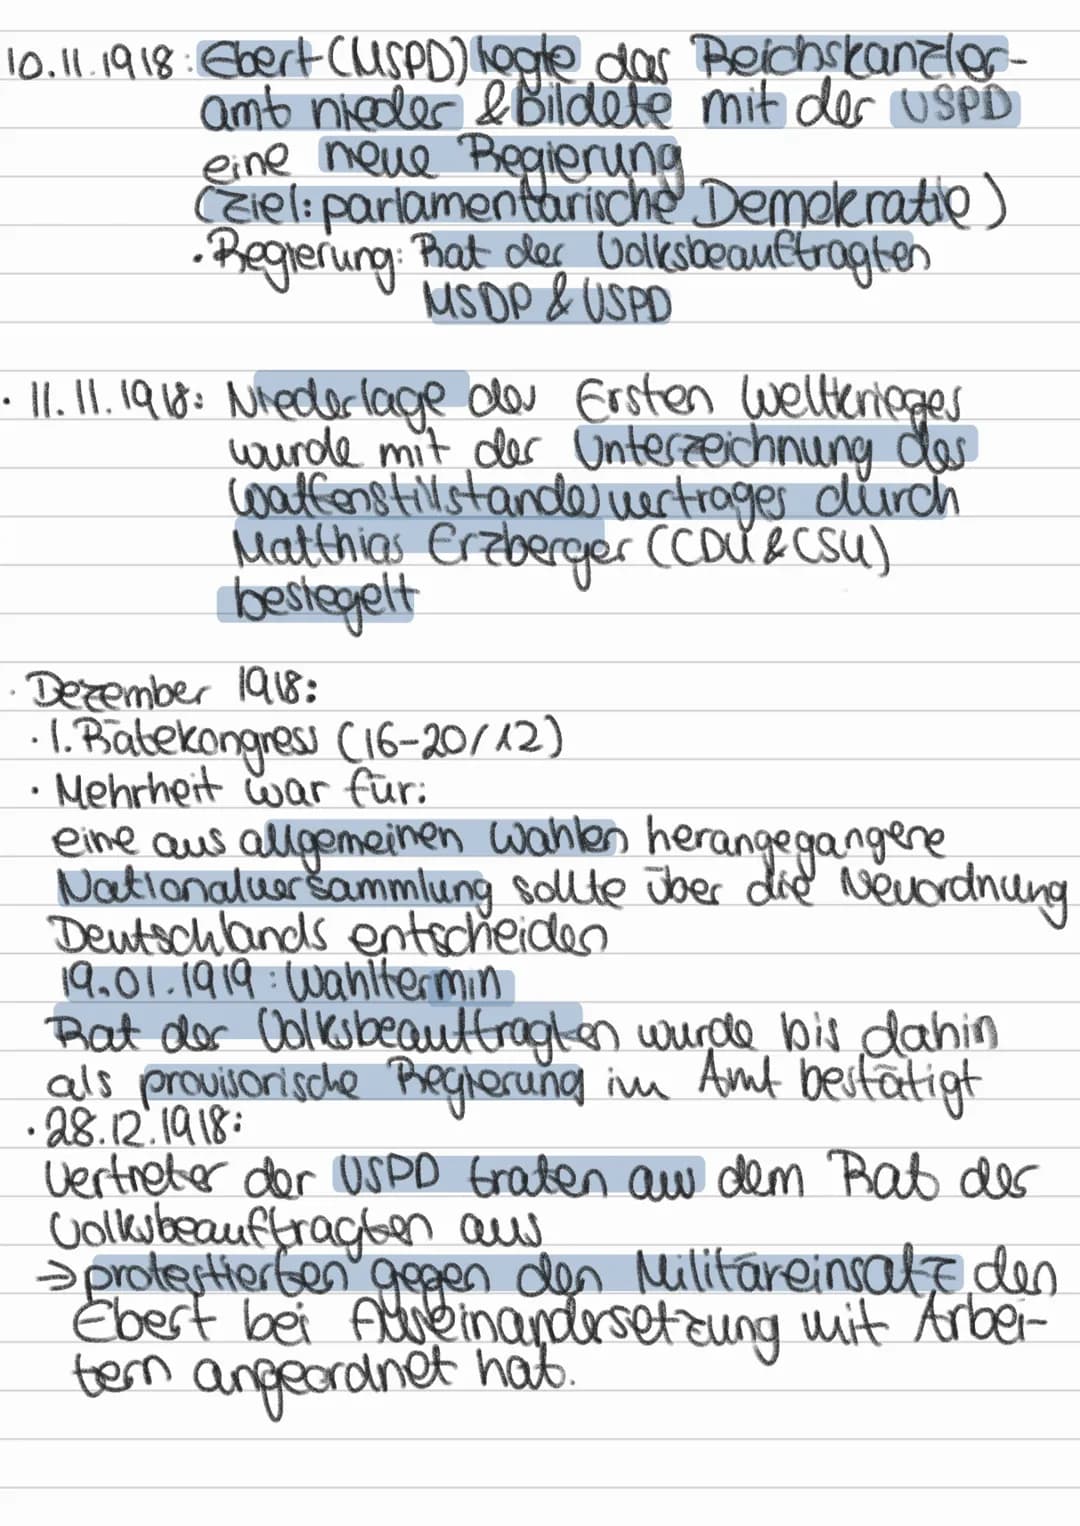 10.11.1918: Ebert (MSPD) legte das Reichskanzler-
amt nieder & bildete mit der USPD
eine neue Regierung
(Ziel: parlamentarische Demokratie)
• Regierung: Rat der Volksbeauftragten
MSDP & USPD
• 11.11.1918: Niederlage des Ersten Weltkrieges
wurde mit der Unterzeichnung des
Waffenstillstandsvertrages durch
Matthias Erzberger (CDU & CSU)
besiegelt
• Dezember 1918:
• 1. Rätekongress (16-20/12)
• Mehrheit war für:
eine aus allgemeinen Wahlen herangegangene
Nationalversammlung sollte über die Neuordnung
Deutschlands entscheiden
19.01.1919: Wahltermin
Rat der Volksbeauftragten wurde bis dahin
als provisorische Regierung im Amt bestätigt
• 28.12.1918:
Vertreter der USPD traten aus dem Rat der
Volksbeauftragten aus
→ protestierten gegen den Militäreinsatz den
Ebert bei Auseinandersetzung mit Arbei-
tern angeordnet hat.